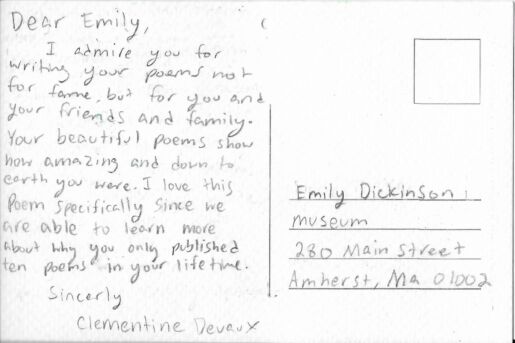 Dear Emily,
I admire you for
writing your poems not
for fame, but for you and
your friends and family.
Your beautiful poems show
how amazing and down to
earth you were. I love this
Poem specifically since we
are able to learn more
about why you only published
ten poems in your lifetime.
Sincerly
Clementine Devaux
Emily Dickinson
museum
280 Main Street
Amherst, Ma 01002